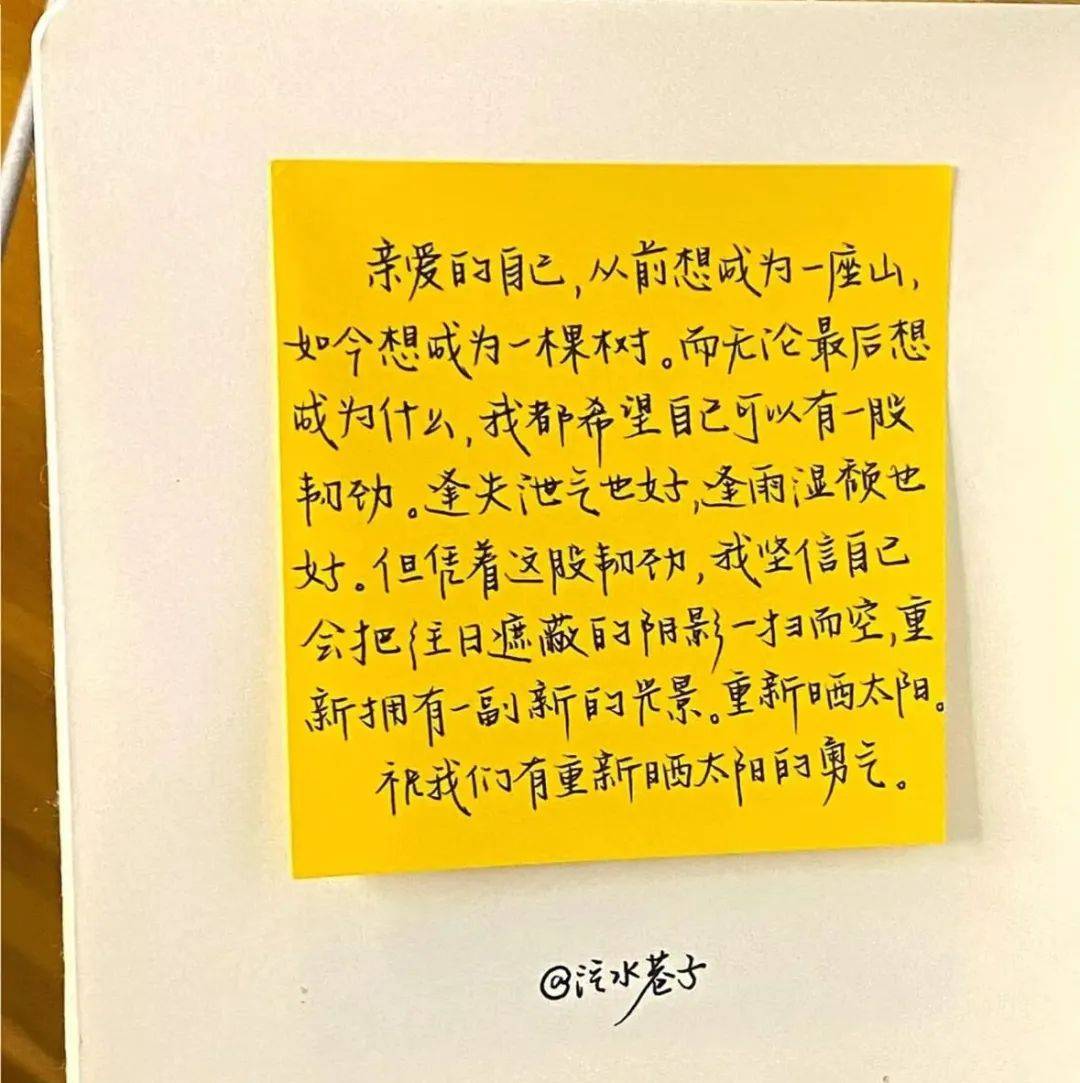 亲爱的自己,从前想成为一座山,
如今想成为一棵树。而无论最后想
成为什么,我都希望自己可以有一股
韧劲。逢失泄气也好,逢雨湿颓也
好。但凭着这股韧劲,我坚信自己
会把往日遮蔽的阴影一扫而空,重
新拥有一副新的光景。重新晒太阳。
祝我们有重新晒太阳的勇气。
@泫水巷子